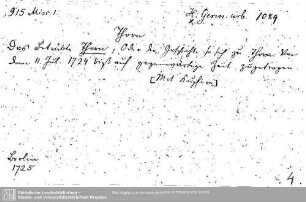 915 Misc. 1. H. Germ. urb. 1089
Thorn
Das betrübte Thorn, Oder die Geschichte so sich zu Thorn von
dem 11. Jul. 1724 biß auf gegenwärtige Zeit zugetragen
[Mit Kupfern]
Berlin
1725
4.
Sächsische Landesbibliothek –
Staats- und Universitätsbibliothek Dresden